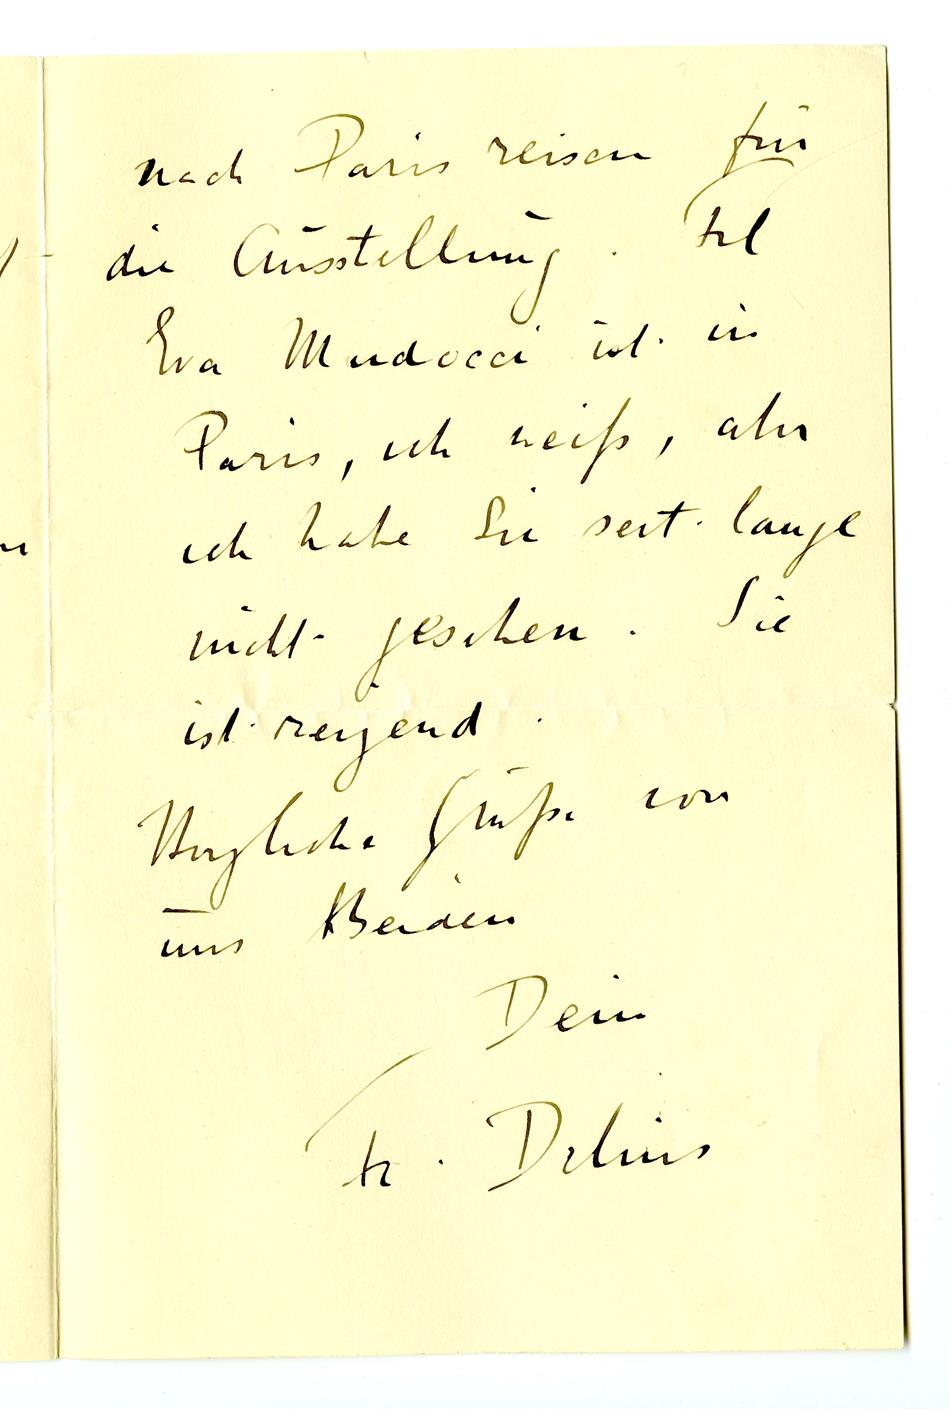 nach Paris reisen für
die Ausstellung. Frl
Eva Mudocci ist in
Paris, ich weiß, aber
ich habe Sie seit lange
nicht gesehen. Sie
ist reizend.
Herzliche Grüße von
uns Beiden
Dein
Fr. Delius